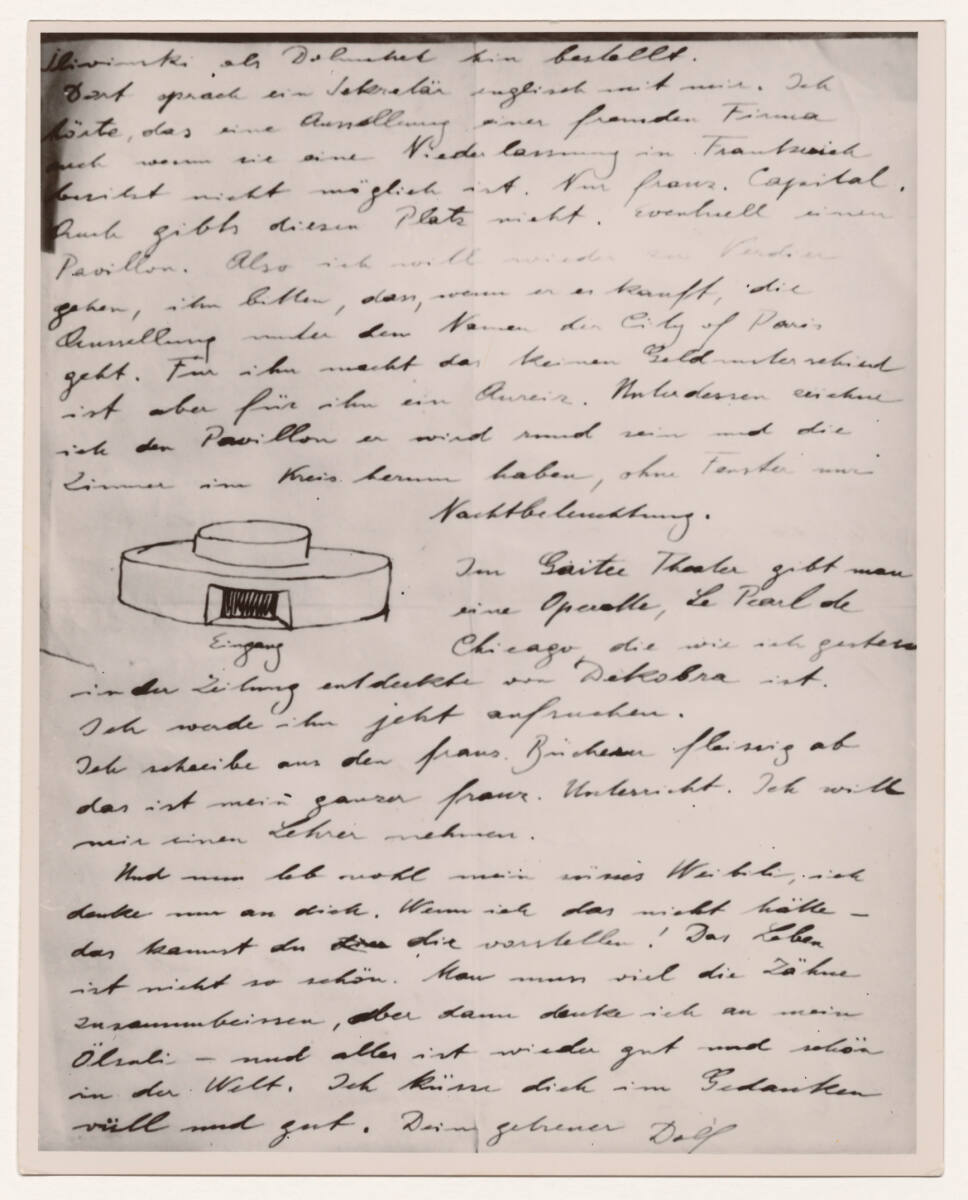 Sliwinski als Dolmetch hin bestellt.
Dort sprach ein Sekretär englisch mit mir. Ich
hörte, das eine Ausstellung einer fremden Firma
auch wenn sie eine Niederlassung in Frankreich
besitzt nicht möglich ist. Nur franz. Capital.
Auch gibts diesen Platz nicht. Eventuell einen
Pavillon. Also ich will wieder zu Verdier
gehen, ihn bitten, dass, wenn er es kauft, die
Aussellung unter dem Namen der City of Paris
geht. Für ihn macht das keinen Geldunterschied
ist aber für ihn ein Anreiz. Unterdessen zeichne
ich den Pavillon er wird rund sein und die
Zimmer im Kreis herum haben, ohne Fenster nur
Nachtbeleuchtung.
Im Gaitee Theater gibt man
eine Operette, Le Pearl de
Chicago, die wie ich gestern
Eingang
in der Zeitung entdeckte von Dekobra ist.
Ich werde ihn jetzt aufsuchen.
Ich schreibe aus den franz. Büchern fleissig ab
das ist mein ganzer franz. Unterricht. Ich will
mir einen Lehrer nehmen.
Und nun leb wohl mein süsses Weibili, ich
denke nur an dich. Wenn ich das nicht hätte –
das kannst du die vorstellen! Das Leben
ist nicht so schön. Man muss viel die Zähne
zusammbeissen, aber dann denke ich an mein
– und alles ist wieder gut und schön
in der Welt. Ich küsse dich im Gedanken
vüll und gut. Dein getreuer Dolf